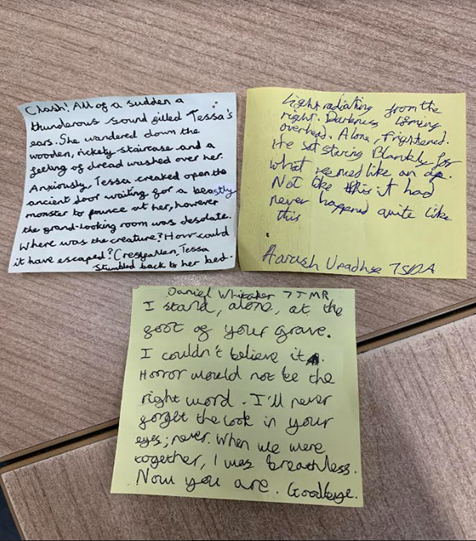 Crash! All of a sudden a
thunderous sound filled Tessa's
ears. She wandered down the
wooden, rickety staircase and a
feeling of dread washed over her.
Anxiously, Tessa creaked open the
ancient door waiting for a beastly
monster to pounce at her, however
the grand-looking room was desolate.
Where was the creature? How could
it have escaped? Crestfallen, Tessa
stumbled back to her bed.
Light radiating from the
right. Darkness looming
overhead. Alone, frightened.
He sat staring Blankly for
what seemed like an
Not like this it had
never happened quite like
this
Aarush
Daniel Whitaker 7JMR
I stand, alone, at the
foot of your grave.
I couldn't believe it.
Horror would not be the
right word. I'll never
forget the look in your
eyes; never. When we were
together, I was breathless.
Now you are. Goodbye.